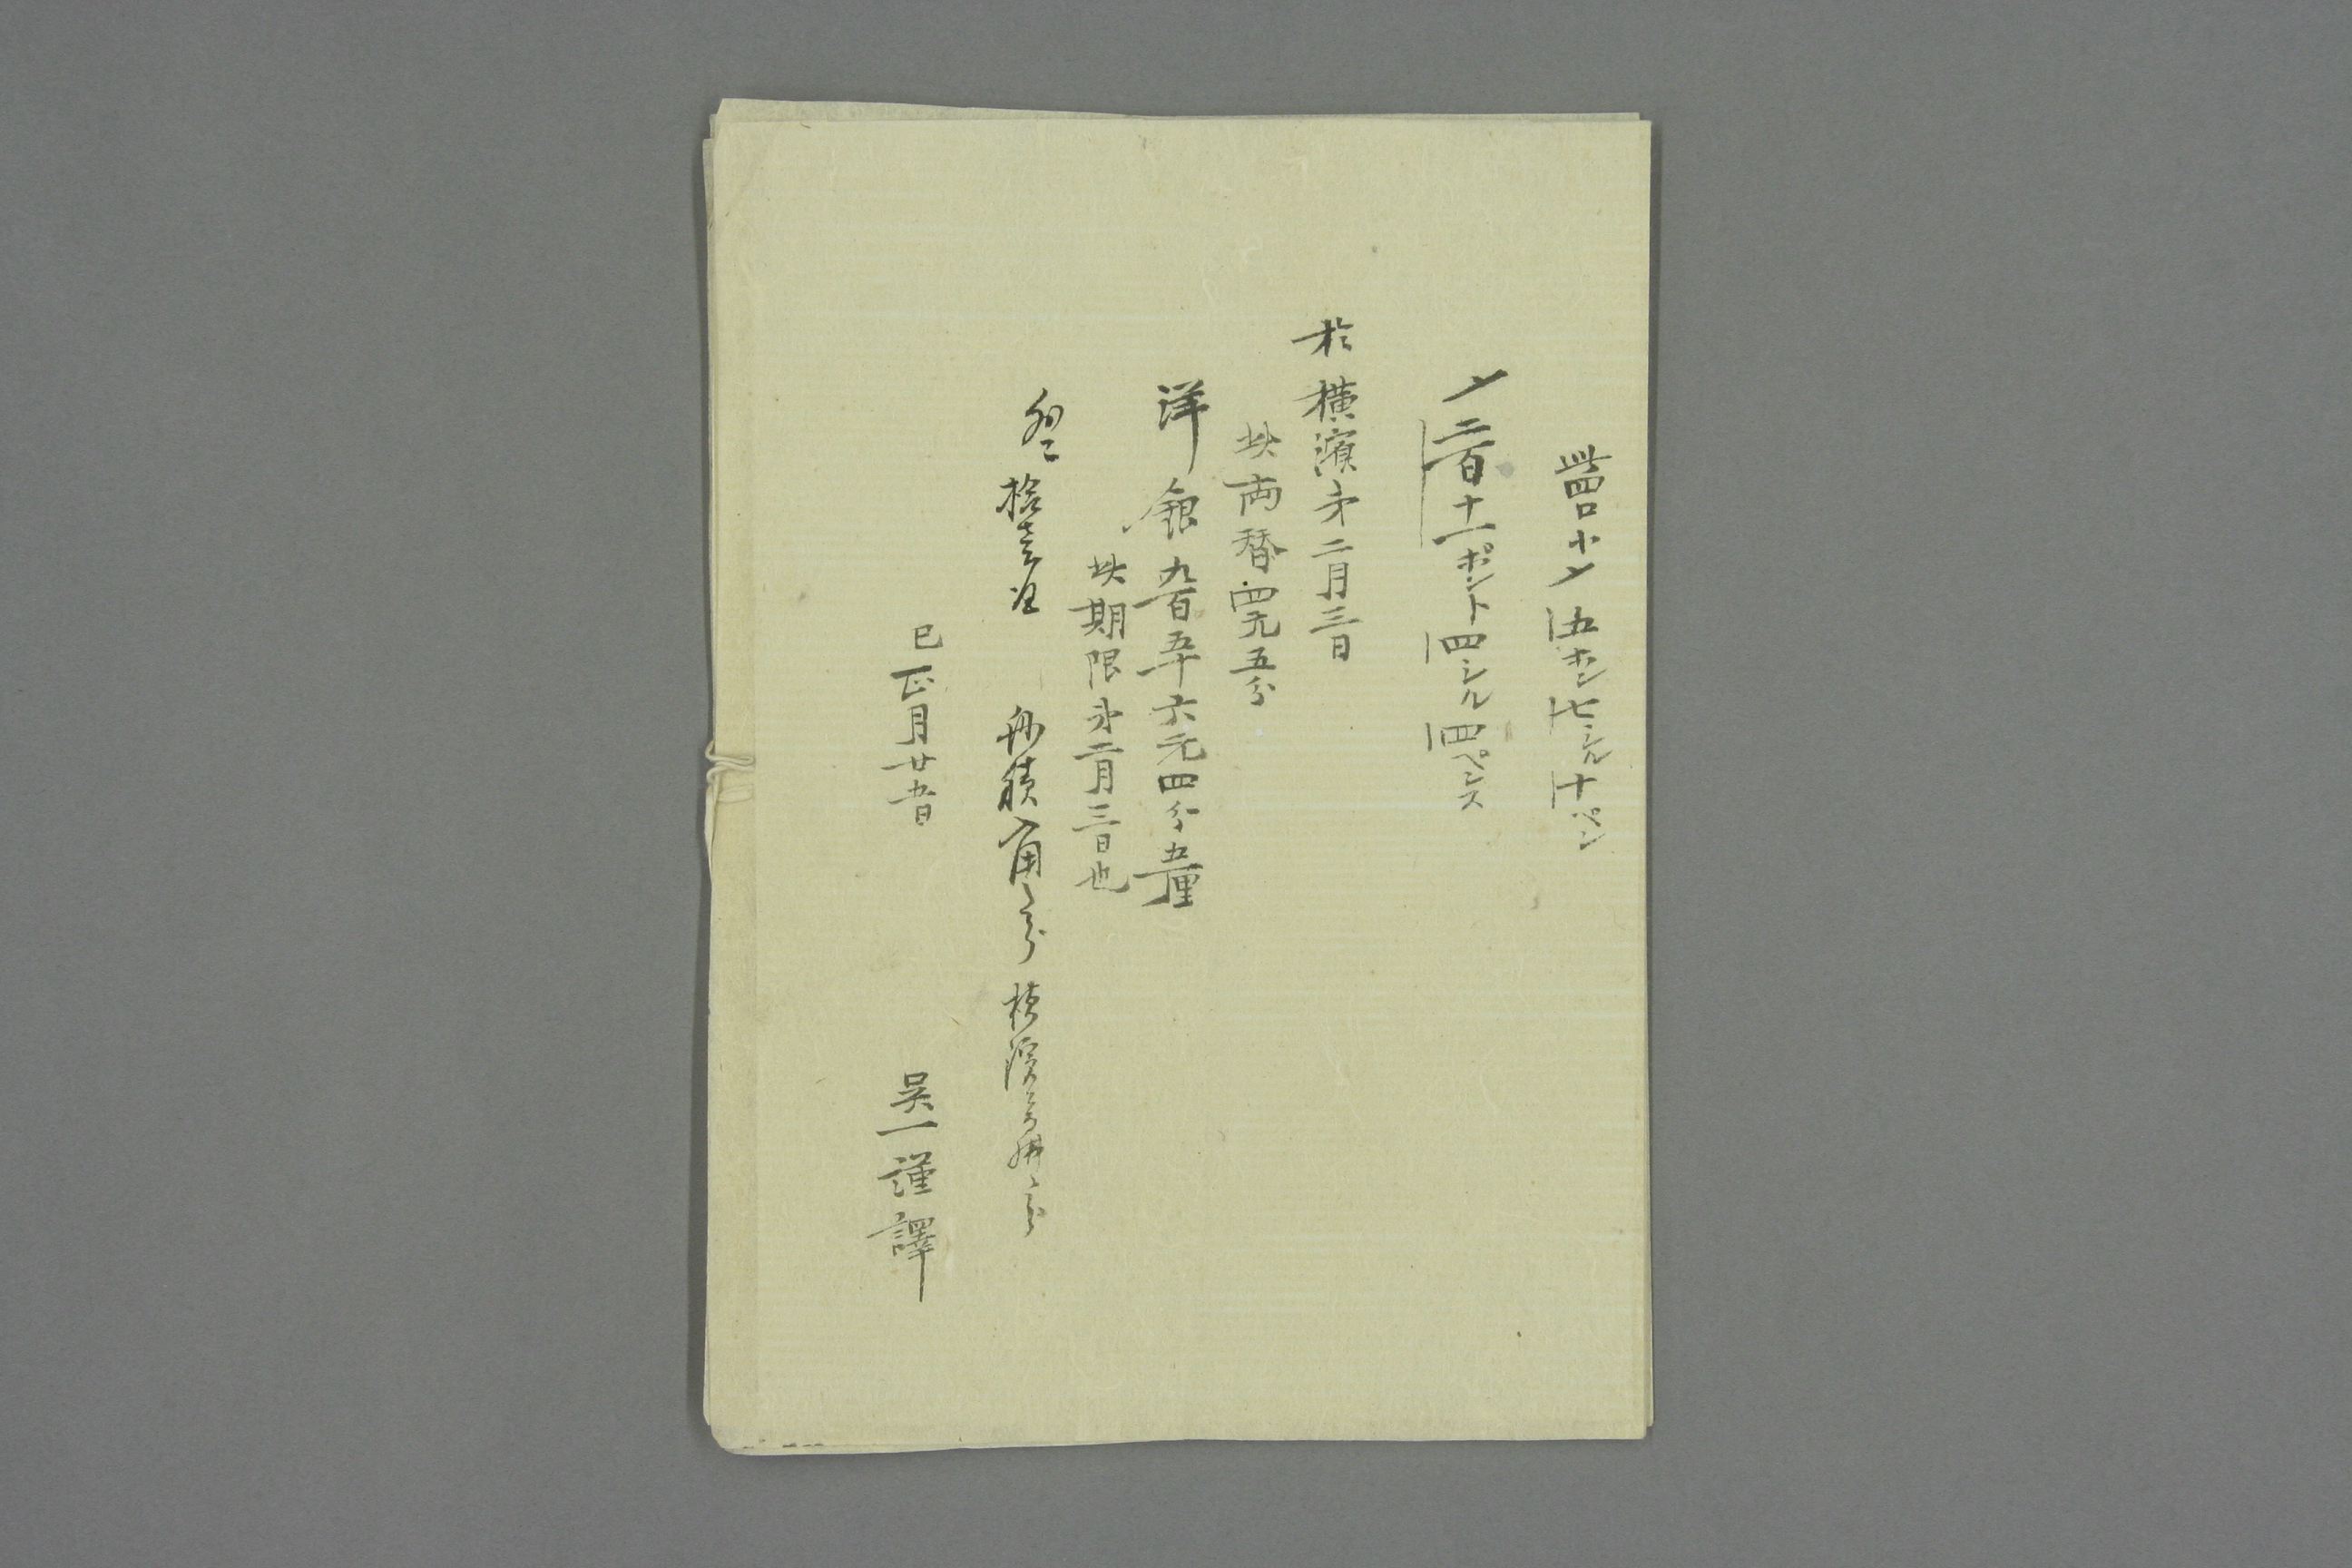 卌四口小〆五ホン七シル十ペン
〆二百十一ポント四シル四ペンス
於横濱第二月三日
此両替四元五分
洋銀九百五十六元四分五厘
此期限第二月三日也
拾壹 舩積入用 横濱
巳正月廿五日
呉一謹譯